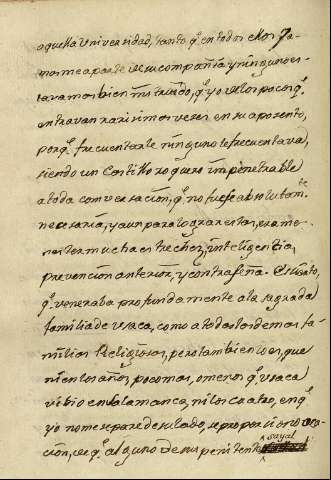 aquella Universidad, tanto q̃ en todos ellos Ja-
mas me aparte de su compañia, y ninguno es-
tavamos bien instruido, q̃ yo de los pocos q̃
entravan rarisimos veses en su aposento,
porq̃ frecuentarle ninguno le frecuentava,
siendo un Castillo roquero impenetrable
a toda conversacion, q̃ no fuese absolutam.te
necesaria, y aun para lograr estas, era me-
nester mucha estrechez, inteligencia,
prevencion anterior, y contraseña. Es cierto,
q̃ veneraba profundamente a la sagrada
familia de Vs aca, como a todos los demas fa-
milias Religiosas, pero tambien lo es, que
ni en los años, pocos mas, o menos q̃ Vs aca
vivio en Salamanca, ni los cuatro, en q̃
yo no me separe de su lado, se proporciono oca-
cion, de q̃ alguno de su penitente sayal